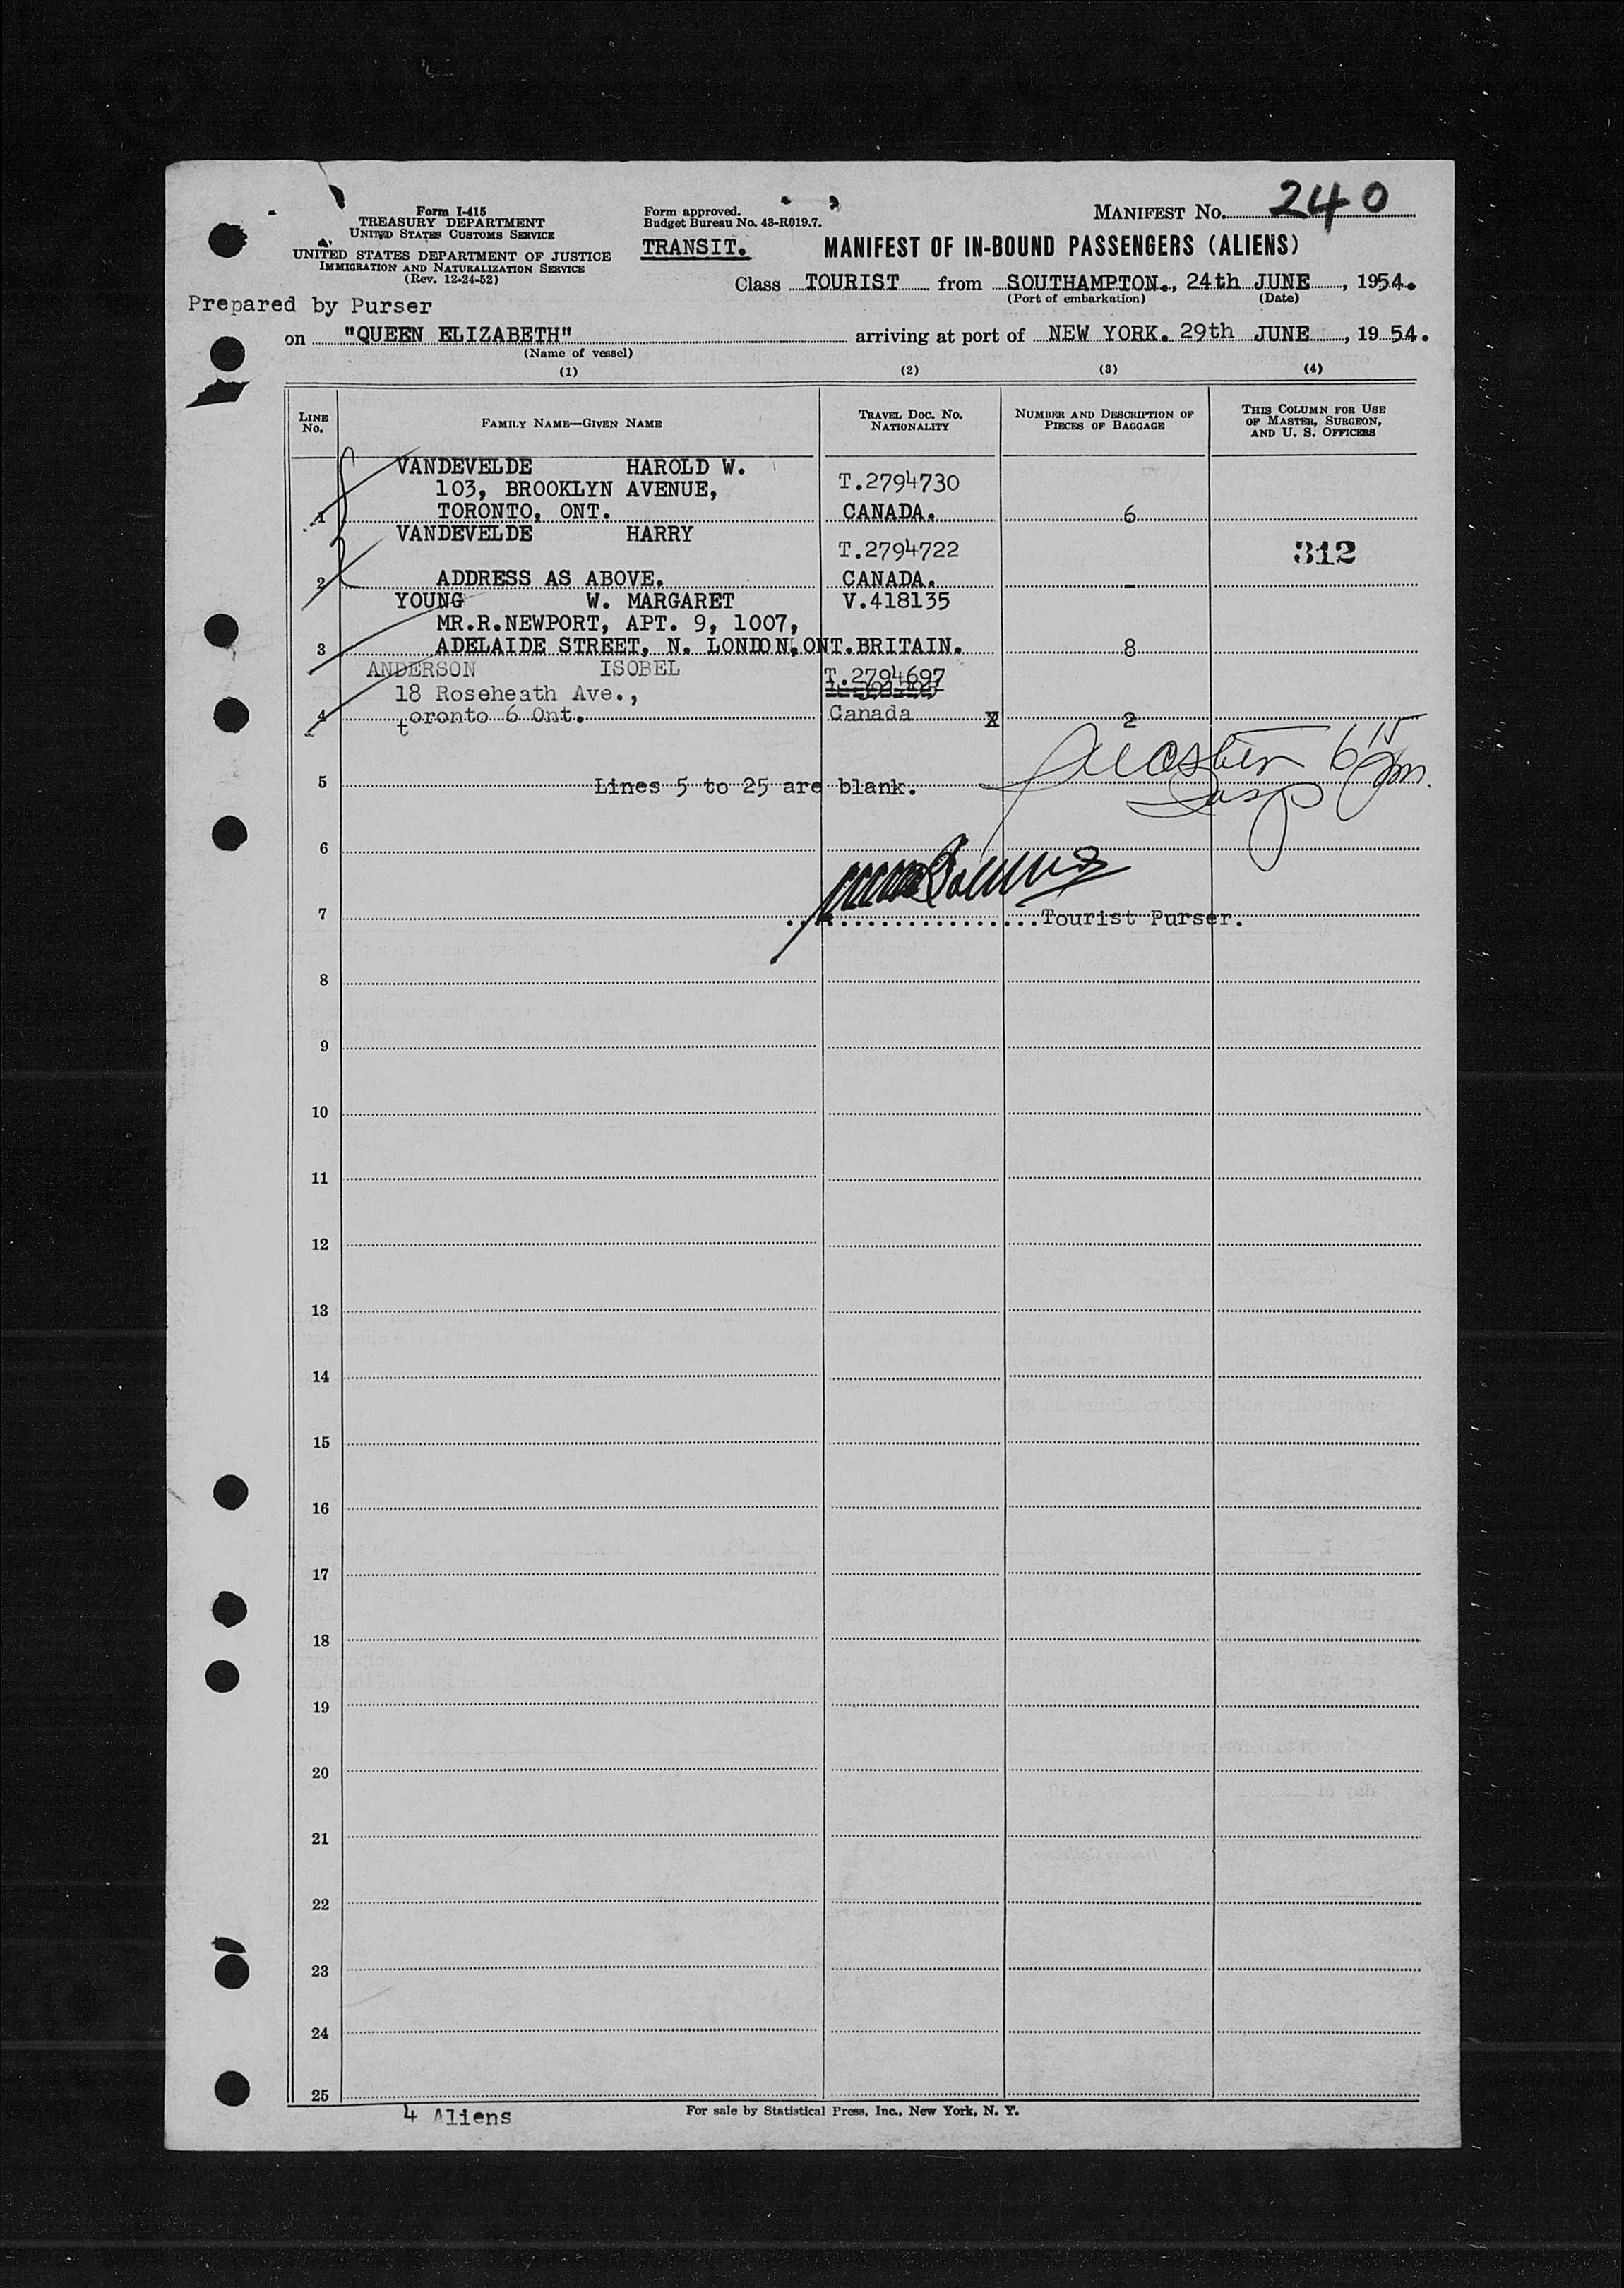 Form I-415
TREASURY DEPARTMENT
UNITED STATES CUSTOMS SERVICE
UNITED STATES DEPARTMENT OF JUSTICE
IMMIGRATION AND NATURALIZATION SERVICE
(Rev. 12-24-52)
Form approved.
Budget Bureau No. 43-R019.7.
TRANSIT.
MANIFEST NO. 240
MANIFEST OF IN-BOUND PASSENGERS (ALIENS)
Class TOURIST from SOUTHAMPTON., 24th JUNE, 1954.
(Port of embarkation) (Date)
Prepared by Purser
on "QUEEN ELIZABETH" arriving at port of NEW YORK. 29th JUNE, 1954.
(Name of vessel)
(1) (2) (3) (4)
LINE NO. FAMILY NAME—GIVEN NAME TRAVEL DOC. NO. NATIONALITY NUMBER AND DESCRIPTION OF PIECES OF BAGGAGE THIS COLUMN FOR USE OF MASTER, SURGEON, AND U. S. OFFICERS
VANDEVELDE HAROLD W.
103, BROOKLYN AVENUE, T.2794730
1 TORONTO, ONT. CANADA. 6
VANDEVELDE HARRY
T.2794722 312
2 ADDRESS AS ABOVE. CANADA. -
YOUNG W. MARGARET V.418135
MR.R.NEWPORT, APT. 9, 1007,
3 ADELAIDE STREET, N. LONDON,ONT. BRITAIN. 8
ANDERSON ISOBEL T.2794697
18 Roseheath Ave.,
4 toronto 6 Ont. Canada X 2
5 Lines 5 to 25 are blank.
6
7 Tourist Purser.
8
9
10
11
12
13
14
15
16
17
18
19
20
21
22
23
24
25
4 Aliens
For sale by Statistical Press, Inc., New York, N. Y.